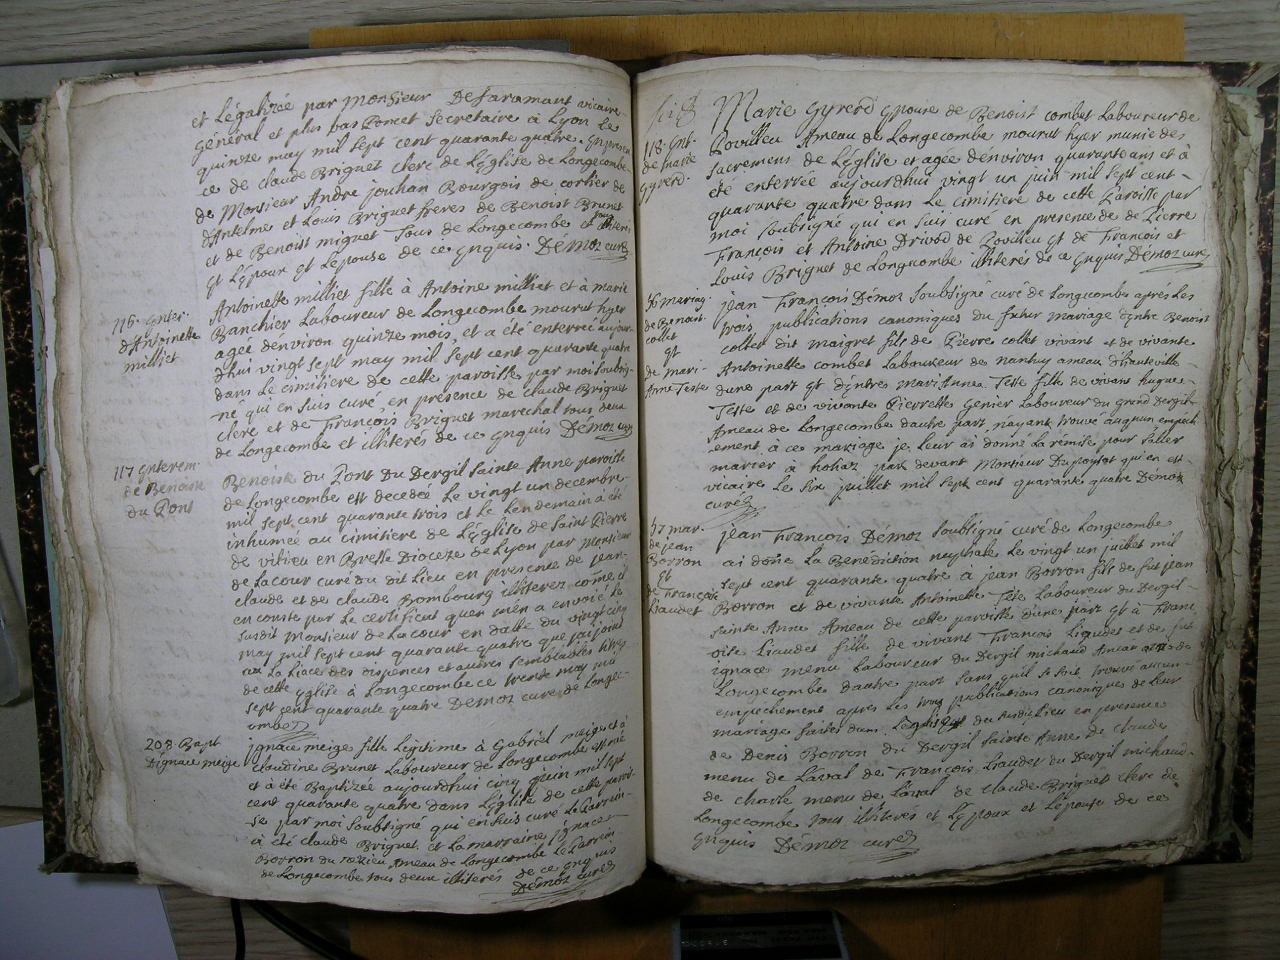 et Légalizée par Monsieur Desaramant vicaire
général et plus bas Poncet Secretaire à Lyon Le
quinze may mil sept cent quarante quatre. Enpresen
ce de claude Briguet clerc de L'Eglise de Longecombe
de Monsieur Andre jouhan Bourgois de corlier de
d'Antelme et Louis Briguet freres de Benoist Brunet
et de Benoist miguet Tous de Longecombe et illiteres
et L'Epoux et L'epouse de ce Enquis. Démoz curé
116. Enter.
d'Antoinette
milliet
Antoinette milliet fille à Antoine milliet et à marie
Banchier Laboureur de Longecombe mourut hyer
agée denviron quinze mois, et a été enterrée aujour-
d'hui vingt sept may mil sept cent quarante quatre
dans Le cimitiere de cette paroisse par moi soubsig-
né qui en suis curé, en présence de claude Briguet
clerc et de François Briguet marechal tous deux
de Longecombe et illiterés de ce Enquis Démoz curé
117 Enterem
de Benoite
du Pont
Benoite du Pont Du Dergil sainte Anne paroisse
de Longecombe est decedée Le vingt un decembre
mil sept cent quarante trois et le Lendemain à été
inhumée au cimitiere de L'Eglise de Saint Pierre
de vilieu en Bresse Dioceze de Lyon par Monsieur
de Lacour curé du dit Lieu en presence de jean
claude et de claude Bombourg illiterez come il
en conste par Le certificat quen m'en a envoié Le
susdit Monsieur de La cour en datte du vingt cinq
may mil sept cent quarante quatre que j'ai joint
au La Liace des dispences et autres semblables titres
de cette Eglise à Longecombe ce trente may mil
sept cent quarante quatre Démoz curé de Longe-
combe
208. Bapt
D'ignace meige
ignace meige fille Légitime à Gabriel meige et à
claudine Brunet Laboureur de Longecombe est née
et à été Baptizée aujourdhui cinq juin mil sept
cent quarante quatre dans L'église de cette parois-
se par moi soubsigné qui en suis curé Le Parrein
à été claude Briguet, et La marraine ignace
Borron du rozieu Ameau de Longecombe Le Parrein
de Longecombe tous deux illiterés de ce Enquis
Démoz curé
118. Ent.
de marie
Gyrerd.
Marie Gyrerd Epouse de Benoist combet Laboureur de
Rovilieu Ameau de Longecombe mourut hyer munie des
sacremens de L'Eglise et agée dénviron quarante ans et à
été enterrée aujourdhui vingt un juin mil sept cent
quarante quatre dans Le cimitiere de cette Paroisse par
moi soubsigné qui en suis curé en presence de de Pierre
François et Antoine Drivod de Rovilieu et de François et
Louis Briguet de Longecombe illiterés de ce Enquis Démoz curé
56 mariag.
de Benoist
collet
et
de mari-
Anne Teste
jean François Démoz soubsigné curé de Longecombe après Les
trois publications canoniques du futur mariage d'entre Benoist
collet dit maigret fils de Pierre collet vivant et de vivante
Antoinette combet Laboureur de nantuy ameau d'hauteville
dune part et d'entre mariAnne Teste fille de vivans hugue
Teste et de vivante Pierrette Genier Laboureur du grand Dergil
Ameau de Longecombe dautre part, n'ayant trouvé aucun empech
ement à ce mariage je leur ai donné La remise pour s'aller
marier à hotiaz par devant Monsieur Dupontot qui en est
vicaire Le six juillet mil sept cent quarante quatre Démoz
curé
57 mar.
de jean
Borron
et
de Françoise
Liaudet
jean François Démoz soubsigné curé de Longecombe
ai doné La Bénédiction nuptiale Le vingt un juillet mil
sept cent quarante quatre à jean Borron fils de fut jean
Borron et de vivante Antoinette Teste Laboureur du Dergil
sainte Anne Ameau de cette paroisse dune part et à Franc
oise Liaudet fille de vivant François Liaudet et de fut
ignace menu Laboureur du Dergil michaud Ameau de
Longecombe dautre part sans qu'il se soit trouvé aucun
empechement après les trois publications canoniques de Leur
mariage faites dans L'église du susdit Lieu en presence
de Denis Borron du Dergil sainte Anne de claude
menu de Laval de François Liaudet du Dergil michaud
de charle menu de Laval de claude Briguet clerc de
Longecombe Tous illiterés et L'Epoux et L'épouse de ce
Enquis Démoz curé